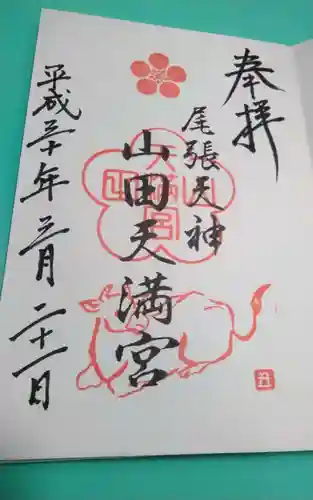 奉拝
尾張天神
山田天満宮
平成三十年三月二十一日
丑